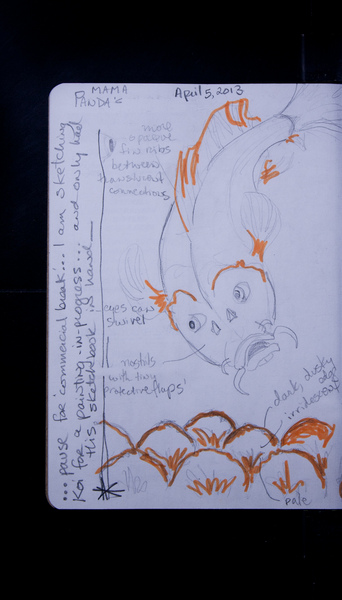 MAMA
PANDA's
April 5, 2013
... pause for 'commercial break'... I am sketching
Koi for a painting-in-progress... and only had
this sketchbook in hand
more
opaque
fin ribs
between
translucent
connections
eyes can
swivel
nostils
with tiny
'protective flaps'
dark, dusky
edge
irridescent
pale